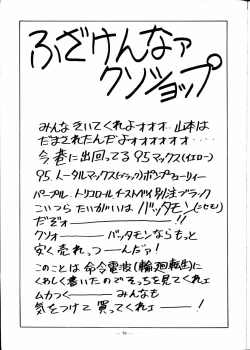 ふざけんなァ
クソショップ
みんなきいてくれよォォォ‥山本は
だまされたんだよォォォォォ‥‥
今巷に出回ってる95マックス(イエロー)
95.トータルマックス(ブラック)ポンプフューリィー
パープル.トリコロールイーストベイ別注ブラック
こいつらたいがいはバッタモン(ニセモノ)
だぞォー――!!
クソォ――バッタモンならもっと
安く売れっつ――んだァ!
このことは命令電波(輪廻転生)に
くわしく書いたのでそっちを見てくれェ
ムカつく――みんなも
気をつけて買ってくれェ――!